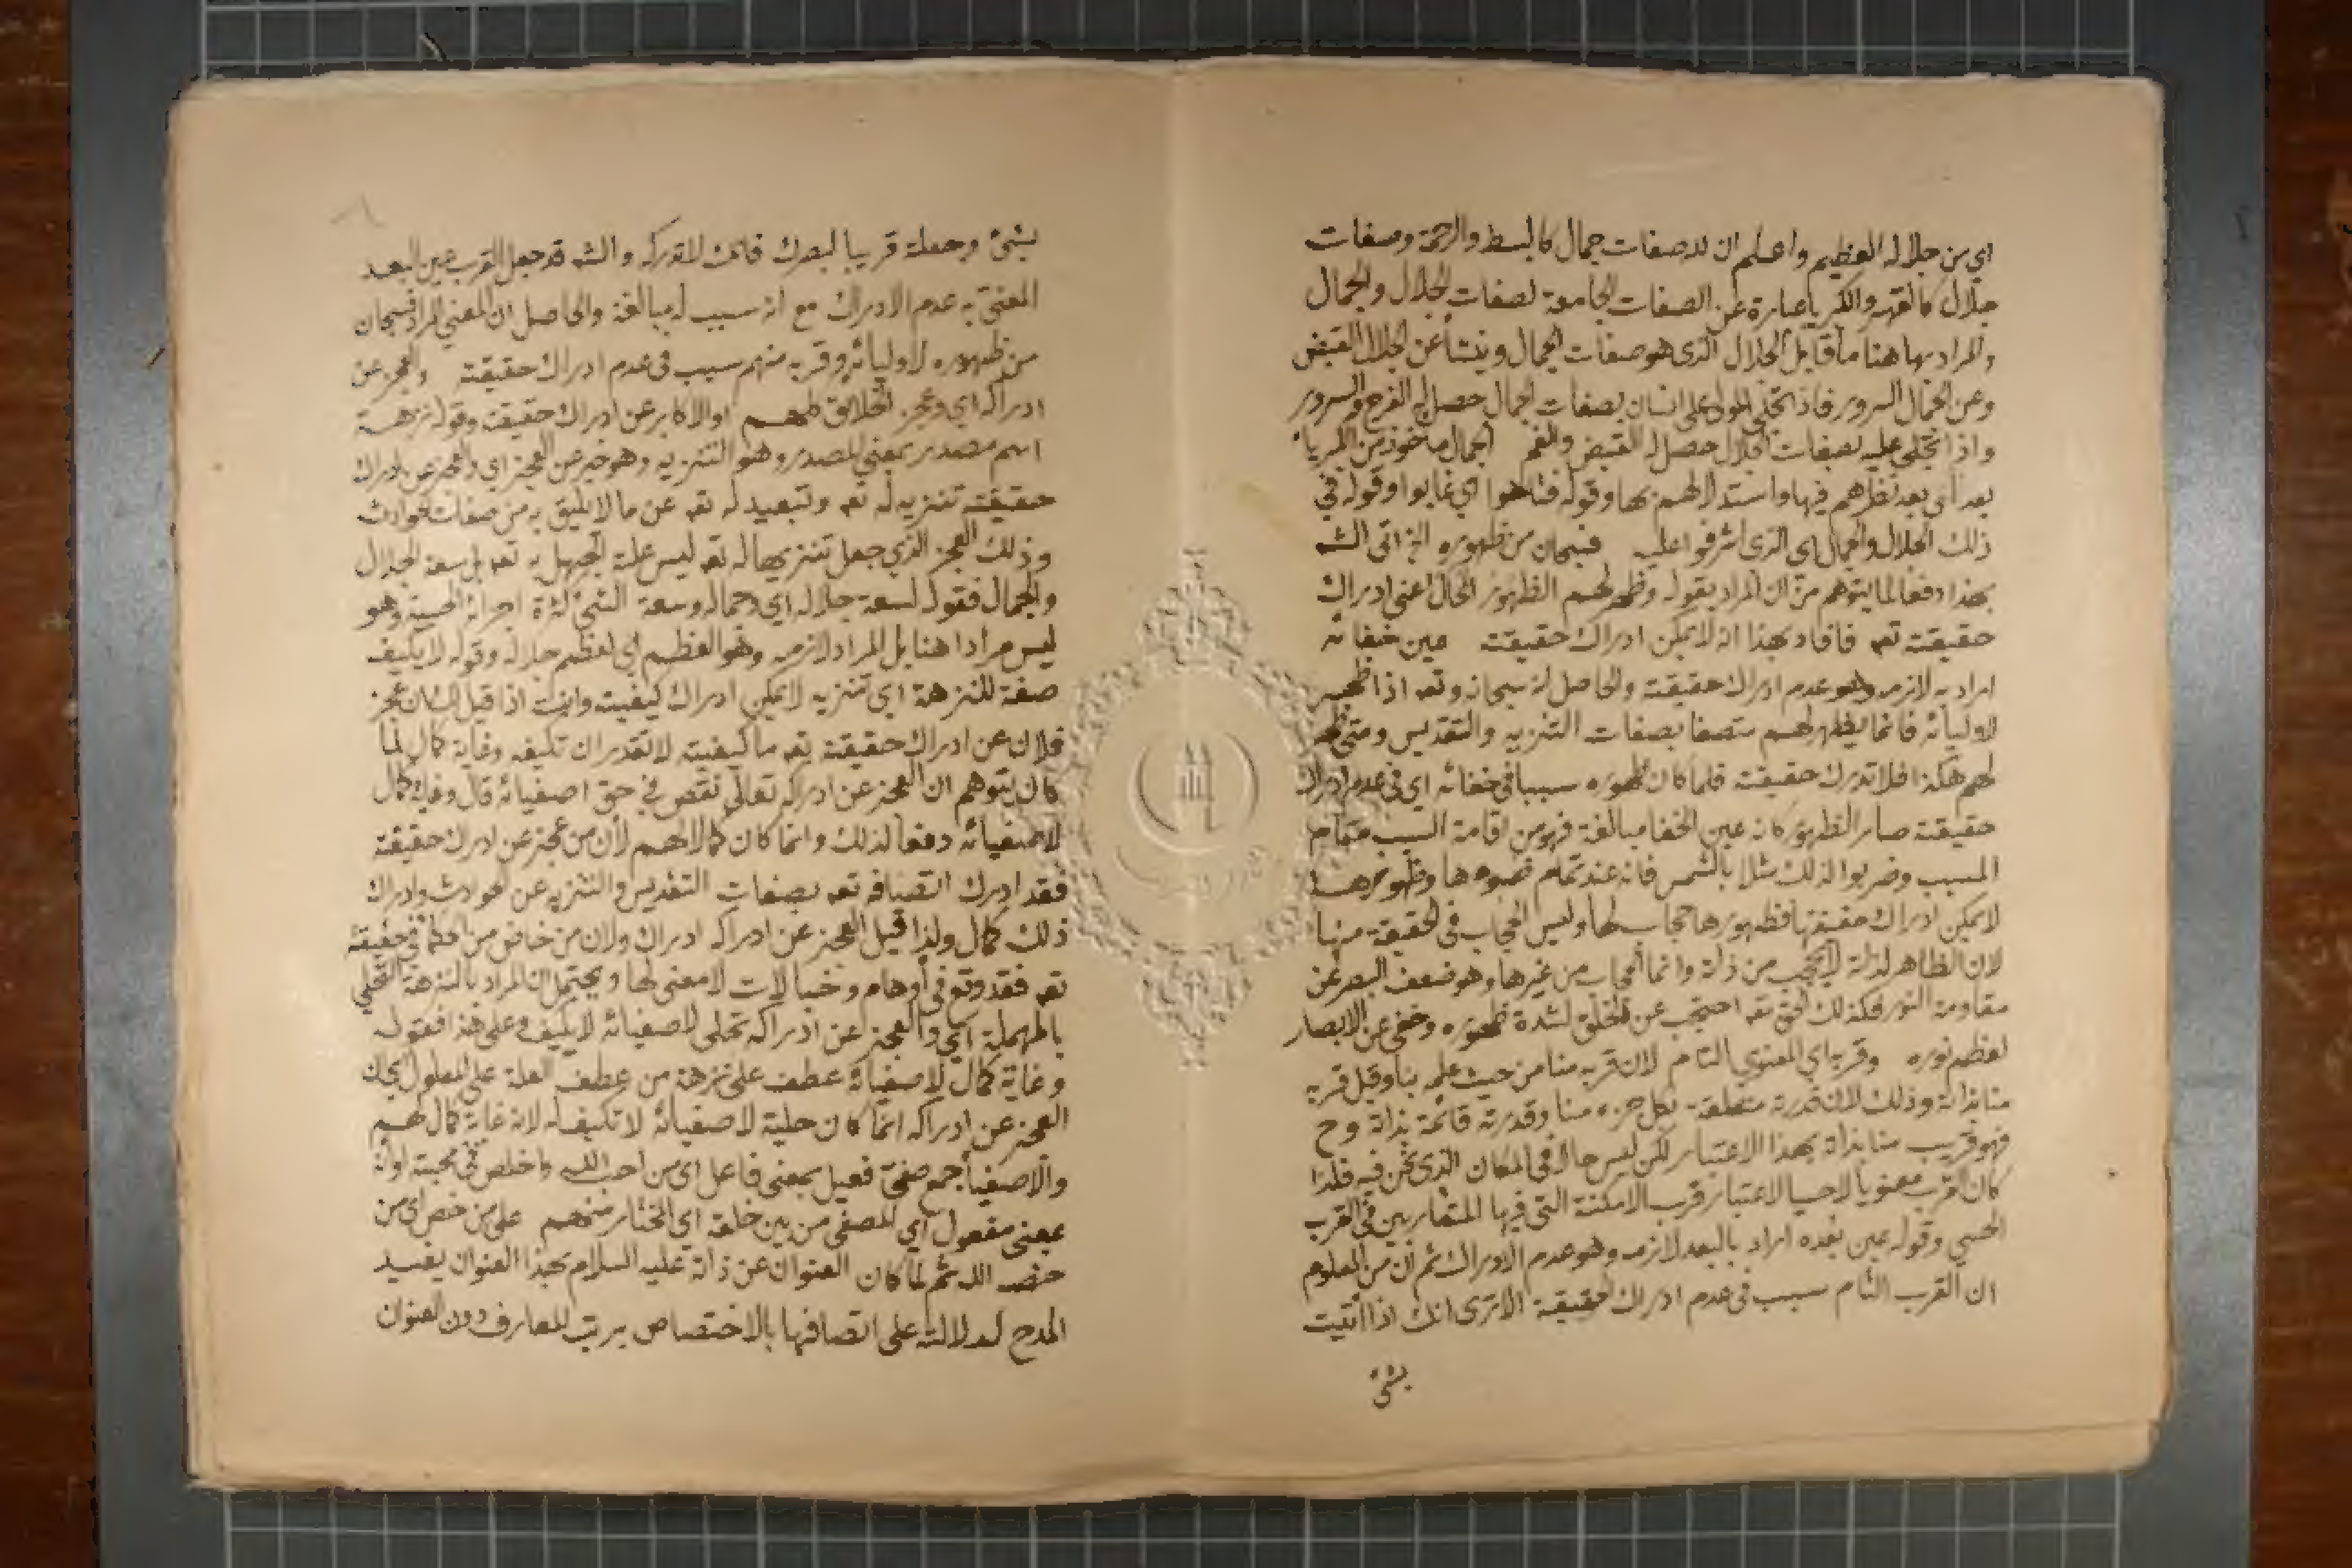 اي من جلاله العظيم واعلم ان له صفات جمال كالبسط والرحمة وصفات
جلال كالقهر والكبريا عبارة عن الصفات الجامعة لصفات الجلال والجمال
والمراد بها هنا ما قابل الجلال الذى هو صفات الجمال وينشأ عن الجلال القبض
وعن الجمال السرور فاذا تجلى المولى على انسان بصفات الجمال حصل له الفرح والسرور
واذا تجلى عليه بصفات الجلال حصل له القبض والغم الجمال مأخوذ من
بعد اى بعد نظرهم فيها واستدلالهم بها وقوله فتاهوا اي غابوا وقوله في
ذلك الجلال والجمال اى الذى اشرفوا عليه فسبحان من ظهوره الخ اتى الشه
بهذا دفعا لما يتوهم من ان المراد بقوله وظهر لهم الظهور الحال اعنى ادراك
حقيقته تعه فافاد بهذا انه لا يمكن ادراك حقيقته عين خفائه
اراد به لازمه وهو عدم ادراك حقيقته والحاصل انه سبحانه وتعه اذا ظهر
لاوليائه فانما يظهر لهم متصفا بصفات التنزيه والتقديس ومتى ظهر
لهم هكذا فلا تدرك حقيقته فلما كان ظهوره سببا فى خفائه اى فى عدم ادراك
حقيقته صار الظهور كانه عين الخفا مبالغة فهو من اقامة السبب مقام
المسبب وضربوا لذلك مثلا بالشمس فانه عند تمام ضوءها وظهورها
لا يمكن ادراك حقيقتها فظهورها حجاب لها وليس الحجاب فى الحقيقة منها
لان الظاهر لذاته لا يحجب من ذاته وانما الحجاب من غيرها وهو ضعف البصر عن
مقاومة النور فكذلك الحق تعه احتجب عن الخلق لشدة ظهوره وخفى عن الابصار
لعظم نوره وقربه اي المعنوي التام لان قربه منا من حيث علمه بنا وقيل قربه
منا بذاته وذلك لان قدرته متعلقة بكل جزء منا وقدرته قائمة بذاته وح
فهو قريب منا بذاته بهذا الاعتبار لكن ليس حالا فى المكان الذى نحن فيه فلذا
كان القرب معنويا لا حسيا لاعتبار قرب الامكنة التى فيها المتقاربين في القرب
الحسي وقوله عين بعده اراد بالبعد لازمه وهو عدم الادراك ثم ان من المعلوم
ان القرب التام سبب فى عدم ادراك الحقيقة الا ترى انك اذا اتيت
بشئ
بشئ وجعلته قريبا لبصرك فانك لا تدركه والشه قد جعل القرب عين البعد
المعنى به عدم الادراك مع انه سبب له مبالغة والحاصل ان المعنى المراد فسبحان
من ظهوره لاوليائه وقربه منهم سبب فى عدم ادراك حقيقته والعجز عن
ادراكه اي وعجز الخلائق كلهم او الاكابر عن ادراك حقيقته وقوله نزهة
اسم مصدر بمعني المصدر وهو التنزيه وهو خبر عن العجز اي والعجز عن ادراك
حقيقته تنزيه له تعه وتبعيد له تعه عن ما لا يليق به من صفات الحوادث
وذلك العجز الذي جعل تنزيها له تعه ليس علته الجهل به تعه بل سعة الجلال
والجمال فقوله لسعة جلاله اي وجماله وسعة الشئ كثرة اجزائه الحسية وهو
ليس مرادا هنا بل المراد لازمه وهو العظم اي لعظم جلاله وقوله لا يكيف
صفة للنزهة اي تنزيه لا يمكن ادراك كيفيته وانت اذا قيل لك ان عجز
فلان عن ادراك حقيقته تعه ما كيفيته لا تقدر ان تكيفه وغاية كمال لما
كان يتوهم ان العجز عن ادراكه تعالى نقص في حق اصفيائه قال وغاية كمال
لاصفيائه دفعا لذلك وانما كان كمالا لهم لأن من عجز عن ادراك حقيقته
فقد ادرك اتصافه تعه بصفات التقديس والتنزيه عن الحوادث وادراك
ذلك كمال ولذا قيل العجز عن ادراكه ادراك ولان من خاض من الحكما فى حقيقته
تعه فقد وقع فى أوهام وخيالات لا معنى لها ويحتمل ان المراد بالنزهة التحلي
بالمهملة اي والعجز عن ادراكه تحلى لاصفيائه لا يكيف وعلى هذا فقوله
وغاية كمال لاصفيائه عطف على نزهة من عطف العلة على المعلول
العجز عن ادراكه انما كان حلية لاصفيائه لا تكيف له لانه غاية كمال لهم
والاصفيا جمع صفي فعيل بمعنى فاعل اى من احب الله واخلص في محبته او
بمعنى مفعول اي المصفى من بين خلقه اي المختار منهم على من خص اى من
خصه الله ثم لما كان العنوان عن ذاته عليه السلام بهذا العنوان يفيد
المدح له دلالته على اتصافها بالاختصاص برتب المعارف دون العنوان